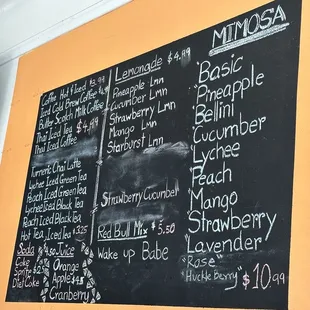 Coffee Hot & Iced $3.99
Iced Cold Brew Coffee $4.99
Butter Scotch Milk Coffee
Thai Iced Tea $4.99
Thai Iced Coffee
Turmeric Chai Latte
Lychee Iced Green Tea
Peach Iced Green Tea
Lychee Iced Black Tea
Peach Iced Black Tea
Hot Tea, Iced Tea $3.25
Soda
Coke
Sprite $2.5
Diet Coke
Juice
Orange
Apple $4.5
Cranberry
Lemonade $4.99
Pineapple Lmn
Cucumber Lmn
Strawberry Lmn
Mango Lmn
Starburst Lmn
Strawberry Cucumber
Red Bull Mix $5.50
Wake up Babe
MIMOSA
Basic
Pineapple
Bellini
Cucumber
Lychee
Peach
Mango
Strawberry
Lavender
"Rose"
"Huckleberry" $10.99